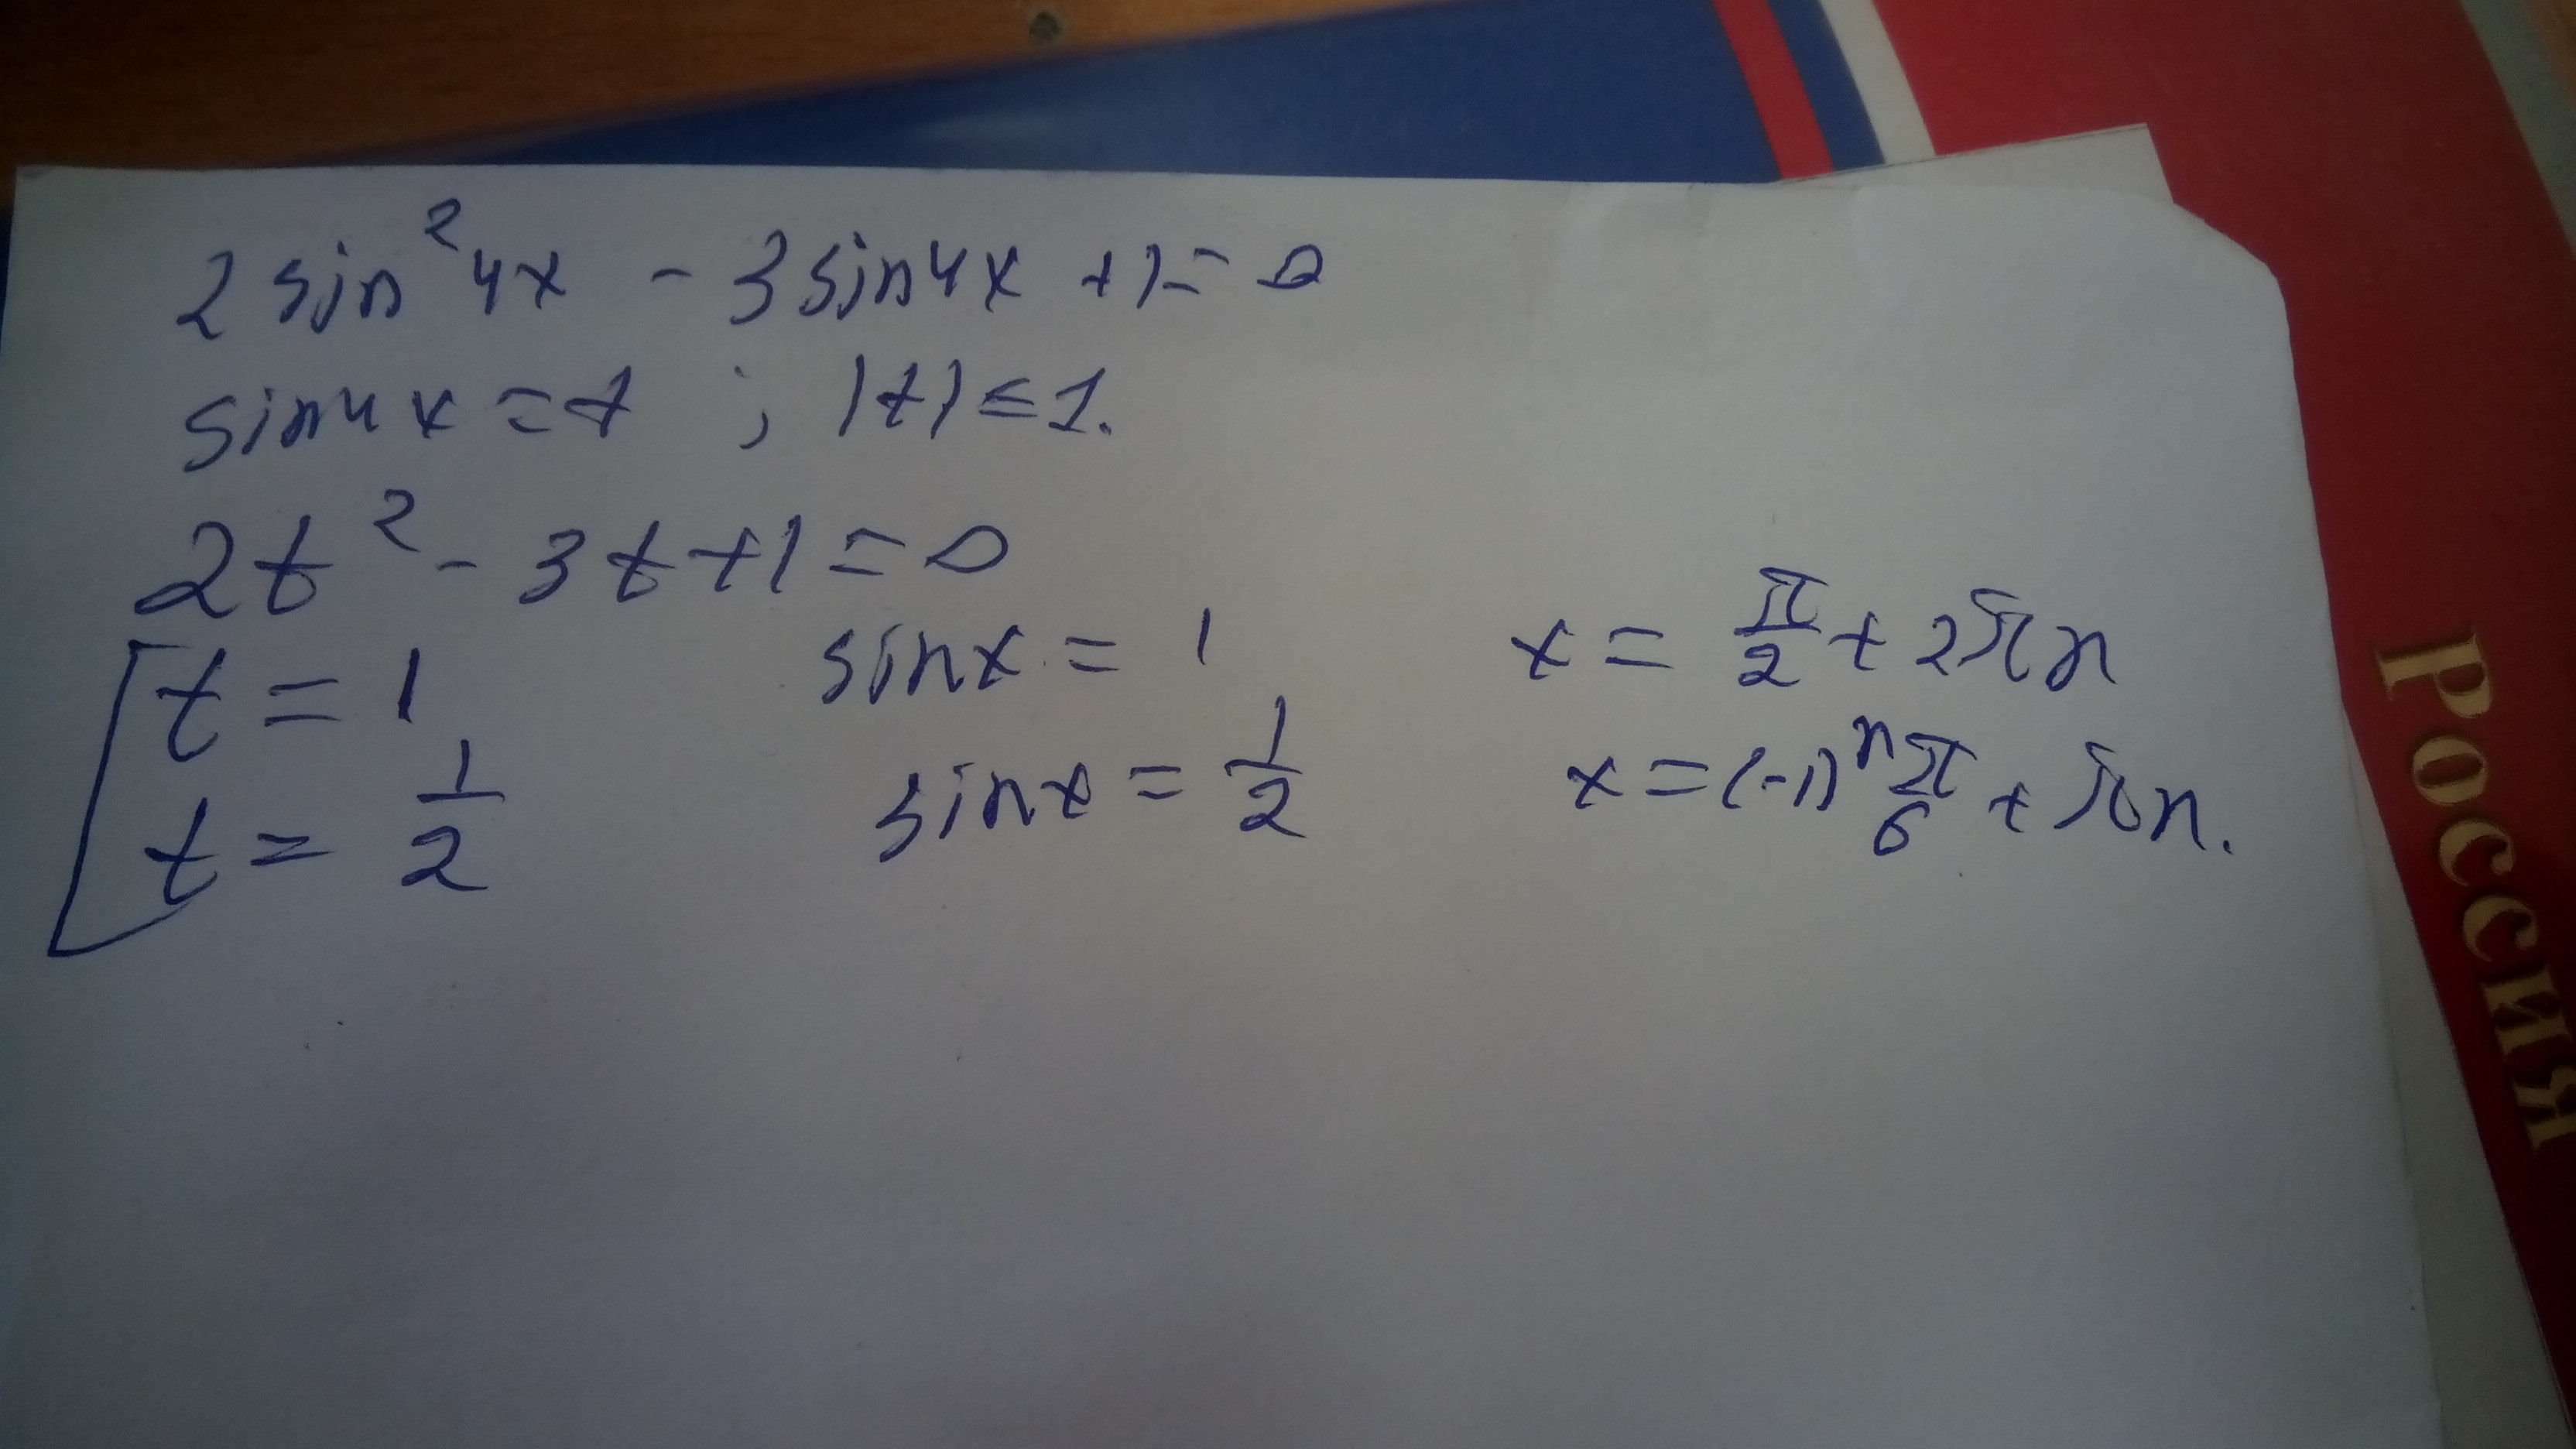 2 sin²4x - 3 sin4x + 1 = 0
sin4x = t ; |t| ≤ 1.
2t² - 3t + 1 = 0
t = 1 sinx = 1 x = π/2 + 2πn
t = 1/2 sinx = 1/2 x = (-1)ⁿ π/6 + πn.
РОССИЯ